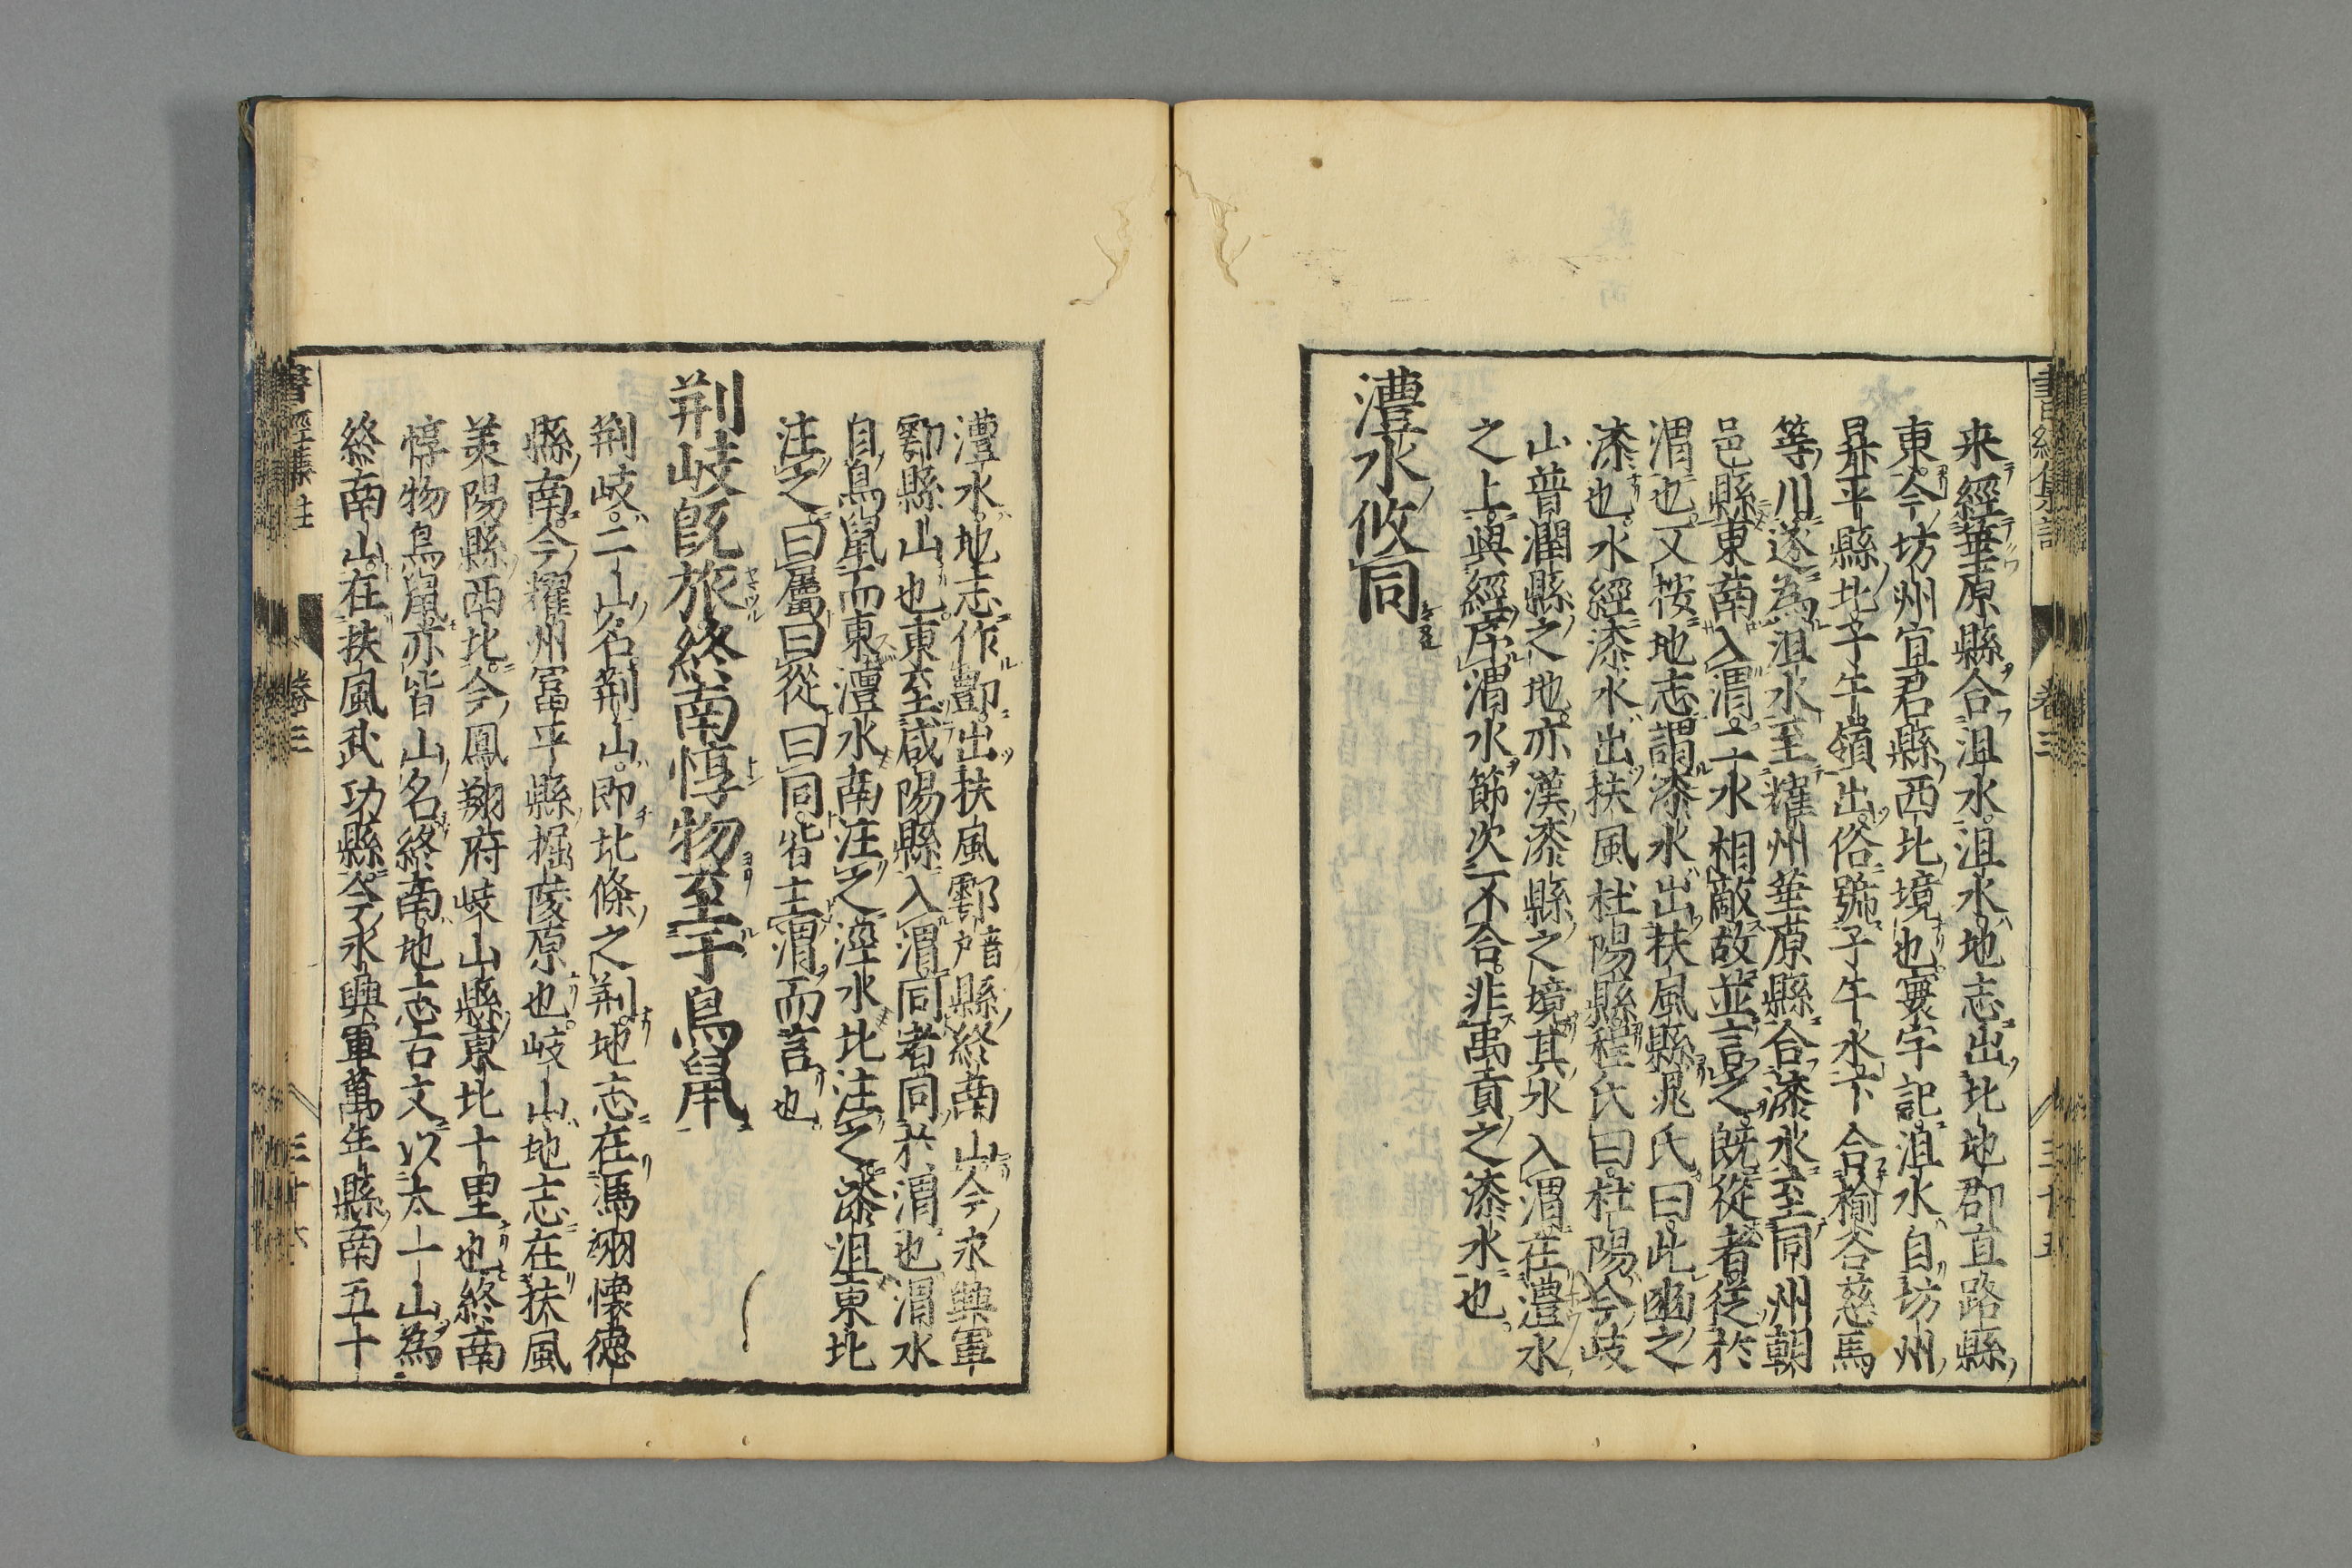 来經華原縣合沮水沮水地志出北地郡直路縣
東今坊州宜君縣西北境也寰宇記沮水自坊州
昇平縣北子午嶺出俗號子午水下合榆谷慈馬
等川遂為沮水至耀州華原縣合漆水至同州朝
邑縣東南入渭二水相敵故並言之既從者從於
渭也又按地志謂漆水出扶風縣晁氏曰此豳之
漆也水經漆水出扶風杜陽縣程氏曰杜陽今岐
山普潤縣之地亦漢漆縣之境其水入渭在灃水
之上與經序渭水節次不合非禹貢之漆水也
灃水攸同
書經集註 卷三 三十五
灃水地志作酆出扶風鄠音戶縣終南山今永興軍
鄠縣山也東至咸陽縣入渭同者同於渭也渭水
自鳥鼠而東灃水南注之涇水北注之漆沮東北
注之曰屬曰從曰同皆主渭而言也
荊岐既旅終南惇物至于鳥鼠
荊岐二山名荊山即北條之荊地志在馮翊懷德
縣南今耀州富平縣掘陵原也岐山地志在扶風
美陽縣西北今鳳翔府岐山縣東北十里也終南
惇物鳥鼠亦皆山名終南地志古文以太一山為
終南山在扶風武功縣今永興軍萬年縣南五十
書經集註 卷三 三十六